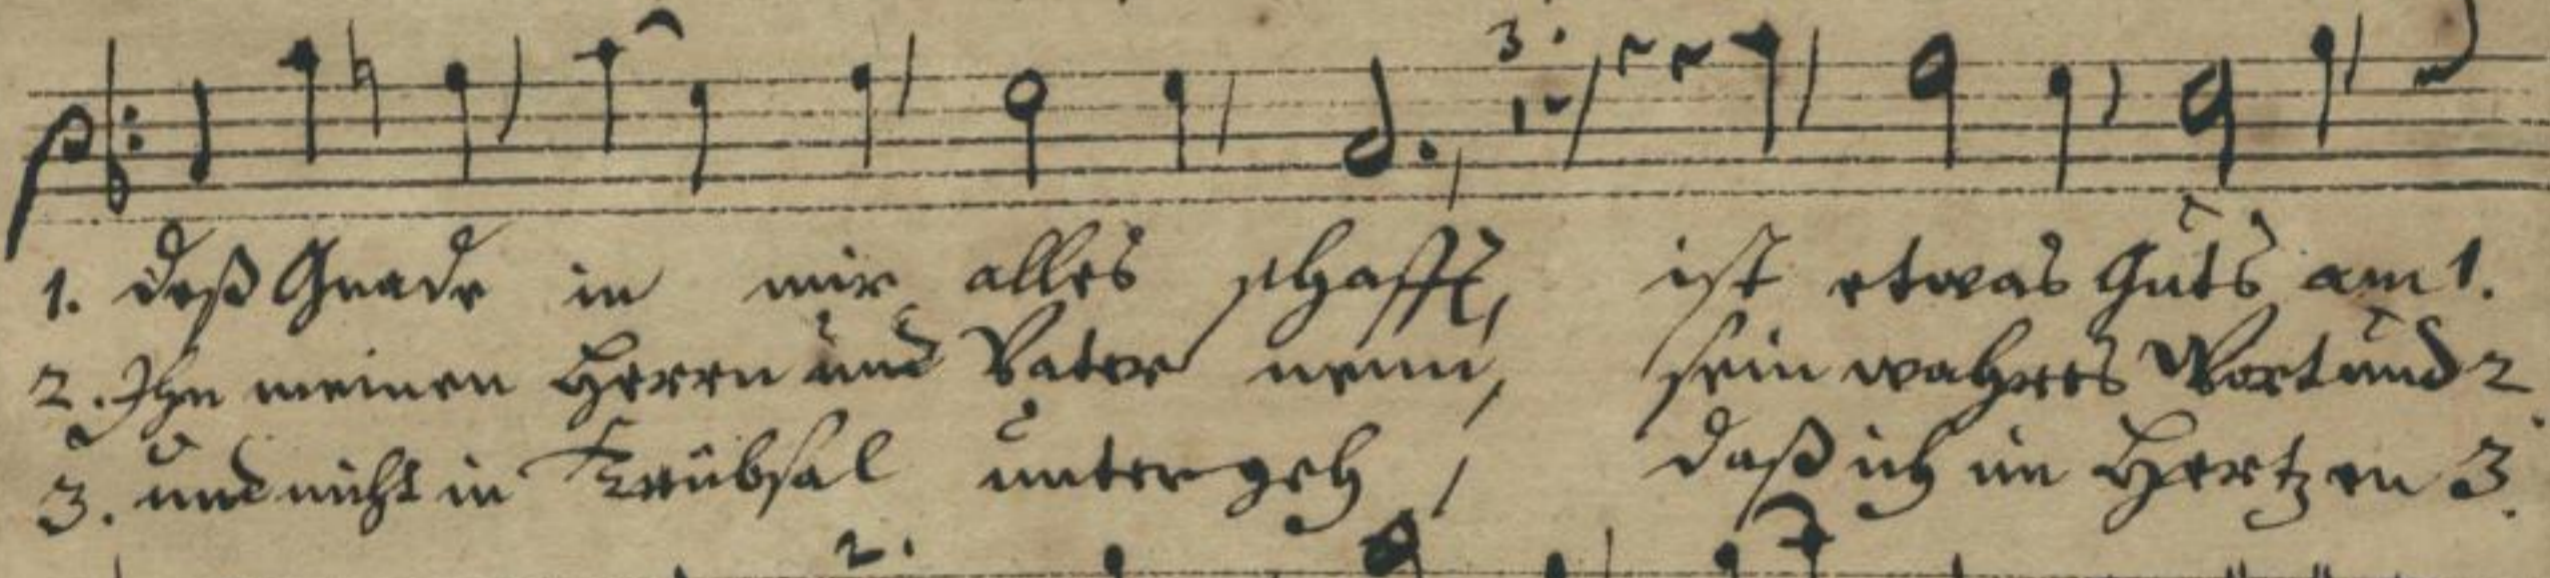 3.
1. deß Gnade in mir alles schafft, ist etwas Guts am 1.
2. Ihn meinen Herrn und Vater nenn, sein wahres Wort und 2
3. und nicht in Trübsal untergeh, daß ich im Hertzen 3.
2.